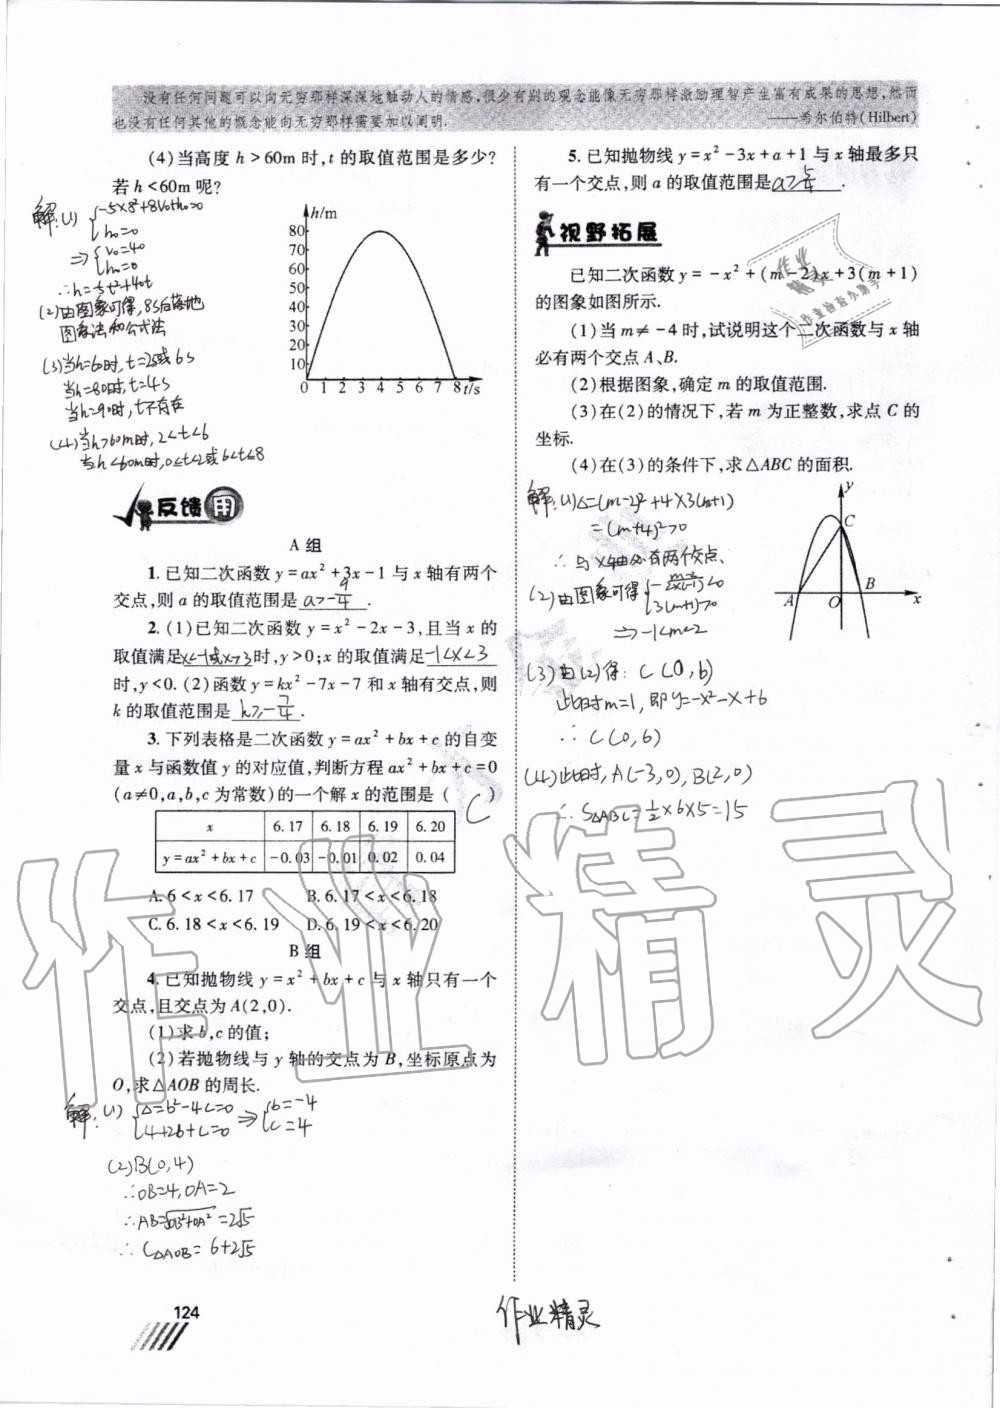 没有任何问题可以向无穷那样深深地触动人的情感,很少有别的观念能像无穷那样激励理智产生富有成果的思想,然而
也没有任何其他的概念能向无穷那样需要加以阐明.
——希尔伯特(Hilbert)
(4)当高度 h>60m 时,t 的取值范围是多少?
若 h<60m 呢?
解:(1) {-5×8²+8v₀+h₀=0
h₀=0
⇒ {v₀=40
h₀=0
(2)由图象可得,8s后落地
图象法和公式法
(3)当h=60时,t=2s或6s
当h=80时,t=4s
当h=90时,t不存在
(4)当h>60m时,2<t<6
当h<60m时,0≤t<2或6<t≤8
h/m
80
70
60
50
40
30
20
10
0 1 2 3 4 5 6 7 8 t/s
反馈 用
A 组
1. 已知二次函数 y=ax²+3x-1 与 x 轴有两个
交点,则 a 的取值范围是 a>-9/4 .
2. (1)已知二次函数 y=x²-2x-3,且当 x 的
取值满足 x<-1或x>3 时,y>0;x 的取值满足 -1<x<3
时,y<0. (2)函数 y=kx²-7x-7 和 x 轴有交点,则
k 的取值范围是 k≥-7/4 .
3. 下列表格是二次函数 y=ax²+bx+c 的自变
量 x 与函数值 y 的对应值,判断方程 ax²+bx+c=0
(a≠0,a,b,c 为常数)的一个解 x 的范围是 ( C )
x 6.17 6.18 6.19 6.20
y=ax²+bx+c -0.03 -0.01 0.02 0.04
A. 6<x<6.17 B. 6.17<x<6.18
C. 6.18<x<6.19 D. 6.19<x<6.20
B 组
4. 已知抛物线 y=x²+bx+c 与 x 轴只有一个
交点,且交点为 A(2,0).
(1)求 b,c 的值;
(2)若抛物线与 y 轴的交点为 B,坐标原点为
O,求△AOB 的周长.
解:(1) {Δ=b²-4c=0
4+2b+c=0 ⇒ {b=-4
c=4
(2)B(0,4)
∴OB=4,OA=2
∴AB=√OB²+OA²=2√5
∴C△AOB=6+2√5
124
5. 已知抛物线 y=x²-3x+a+1 与 x 轴最多只
有一个交点,则 a 的取值范围是 a≥5/4 .
视野拓展
已知二次函数 y=-x²+(m-2)x+3(m+1)
的图象如图所示.
(1)当 m≠-4 时,试说明这个二次函数与 x 轴
必有两个交点 A、B.
(2)根据图象,确定 m 的取值范围.
(3)在(2)的情况下,若 m 为正整数,求点 C 的
坐标.
(4)在(3)的条件下,求△ABC 的面积.
解:(1)Δ=(m-2)²+4×3(m+1)
=(m+4)²>0
∴与x轴必有两个交点.
(2)由图象可得
3(m+1)>0
⇒-1<m<2
(3)由(2)得: C(0,6)
此时m=1,即y=-x²-x+6
∴C(0,6)
(4)此时,A(-3,0),B(2,0)
∴S△ABC=1/2×6×5=15
y
C
A O B x
作业精灵
作业
精灵
作业检查小助手
作业精灵